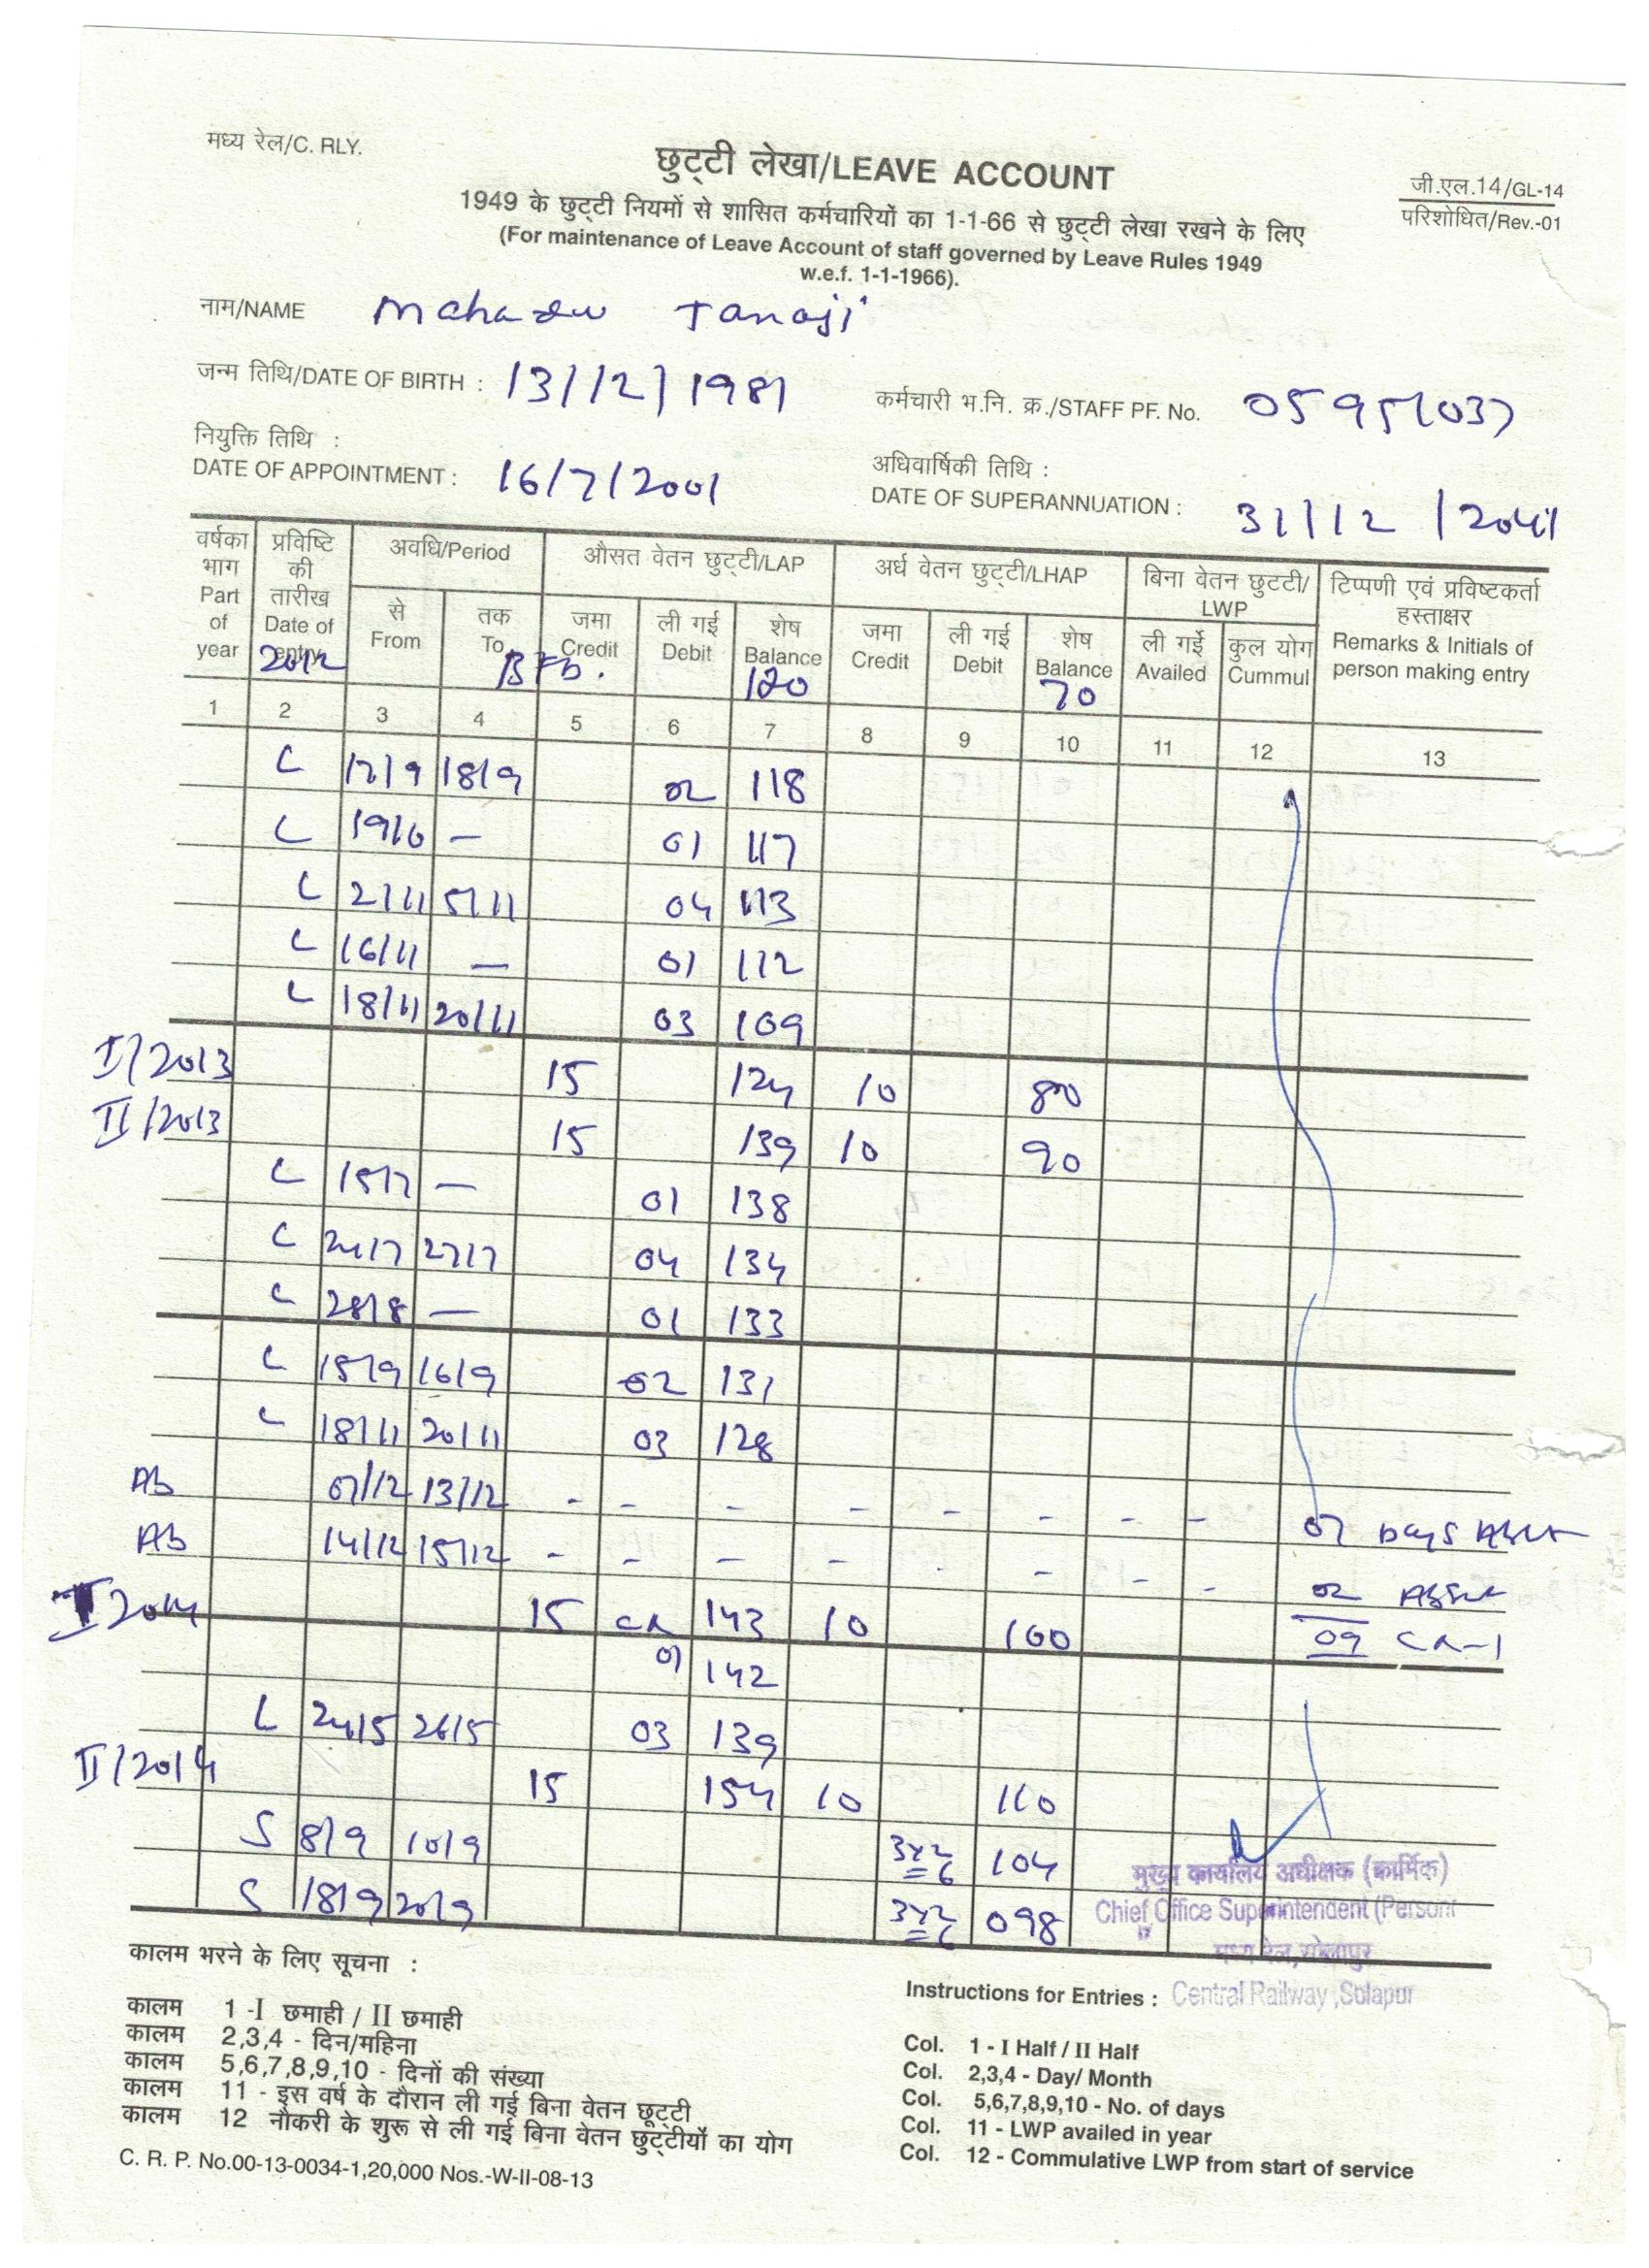 मध्य रेल/C. RLY.
छुट्टी लेखा/LEAVE ACCOUNT
जी.एल.14/GL-14
परिशोधित/Rev.-01
1949 के छुट्टी नियमों से शासित कर्मचारियों का 1-1-66 से छुट्टी लेखा रखने के लिए
(For maintenance of Leave Account of staff governed by Leave Rules 1949
w.e.f. 1-1-1966).
नाम/NAME Mahadew Tanaji
जन्म तिथि/DATE OF BIRTH : 13/12/1981
कर्मचारी भ.नि. क्र./STAFF PF. No.
नियुक्ति तिथि :
DATE OF APPOINTMENT : 16/7/2001
अधिवार्षिकी तिथि :
DATE OF SUPERANNUATION : 31/12/2041
वर्षका भाग Part of year
प्रविष्टि की तारीख Date of entry 2012
अवधि/Period
से From
तक To
औसत वेतन छुट्टी/LAP
जमा Credit
ली गई Debit
शेष Balance
अर्ध वेतन छुट्टी/LHAP
जमा Credit
ली गई Debit
शेष Balance
बिना वेतन छुटटी/LWP
ली गईं Availed
कुल योग Cummul
टिप्पणी एवं प्रविष्टकर्ता हस्ताक्षर
Remarks & Initials of person making entry
B Fd. 120 70
1 2 3 4 5 6 7 8 9 10 11 12 13
L 17/9 18/9 02 118
L 19/6 — 01 117
L 2/11 5/11 04 113
L 16/11 — 01 112
L 18/11 20/11 03 109
I/2013 15 124 10 80
II/2013 15 139 10 90
L 15/7 — 01 138
L 24/7 27/7 04 134
L 28/8 — 01 133
L 15/9 16/9 02 131
L 18/11 20/11 03 128
Ab 07/12 13/12 - - - - - - - - 07 Days Absent
Ab 14/12 15/12 - - - - - - - 02 Absent
I 2014 15 CR 143 10 100 09 CR-1
01 142
L 24/5 26/5 03 139
II/2014 15 154 10 110
S 8/9 10/9 3x2=6 104
S 18/9 20/9 3x2=6 098
मुख्य कार्यालय अधीक्षक (कार्मिक)
Chief Office Superintendent (Personn
मध्य रेल,सोलापुर
Central Railway ,Solapur
कालम भरने के लिए सूचना :
कालम 1 -I छमाही / II छमाही
कालम 2,3,4 - दिन/महिना
कालम 5,6,7,8,9,10 - दिनों की संख्या
कालम 11 - इस वर्ष के दौरान ली गई बिना वेतन छूट्टी
कालम 12 नौकरी के शुरू से ली गई बिना वेतन छुट्टीयों का योग
C. R. P. No.00-13-0034-1,20,000 Nos.-W-II-08-13
Instructions for Entries :
Col. 1 - I Half / II Half
Col. 2,3,4 - Day/ Month
Col. 5,6,7,8,9,10 - No. of days
Col. 11 - LWP availed in year
Col. 12 - Commulative LWP from start of service